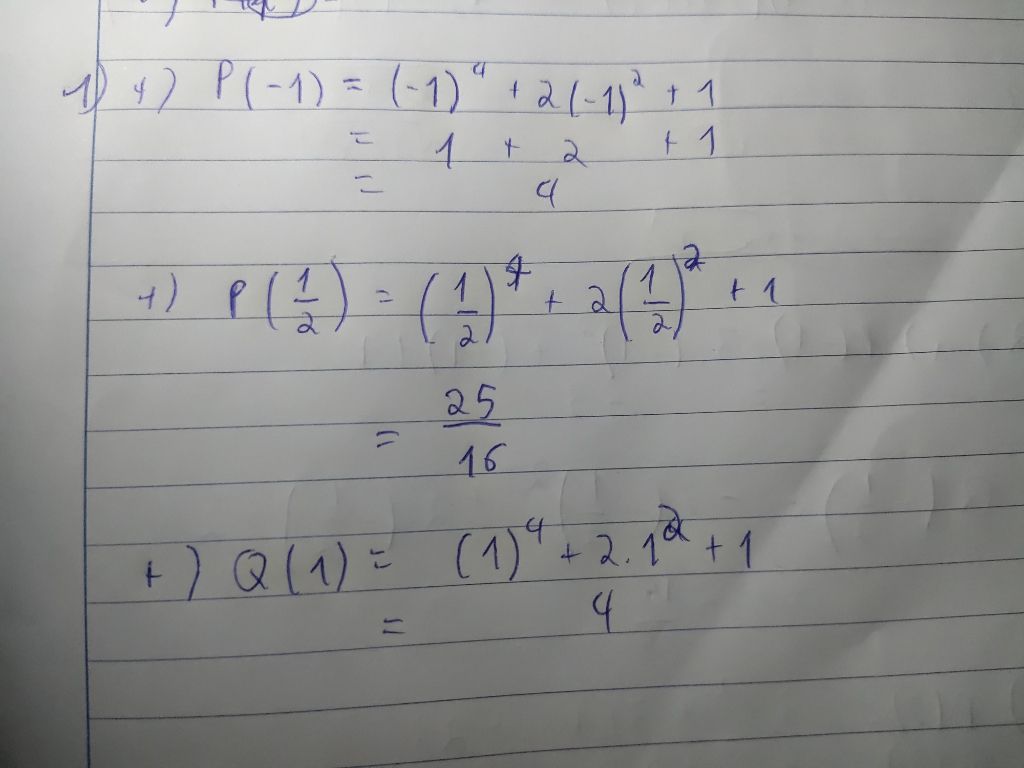 1) +) P(-1) = (-1)⁴ + 2(-1)² + 1
= 1 + 2 + 1
= 4
+) P(1/2) = (1/2)⁴ + 2(1/2)² + 1
= 25/16
+) Q(1) = (1)⁴ + 2.1² + 1
= 4